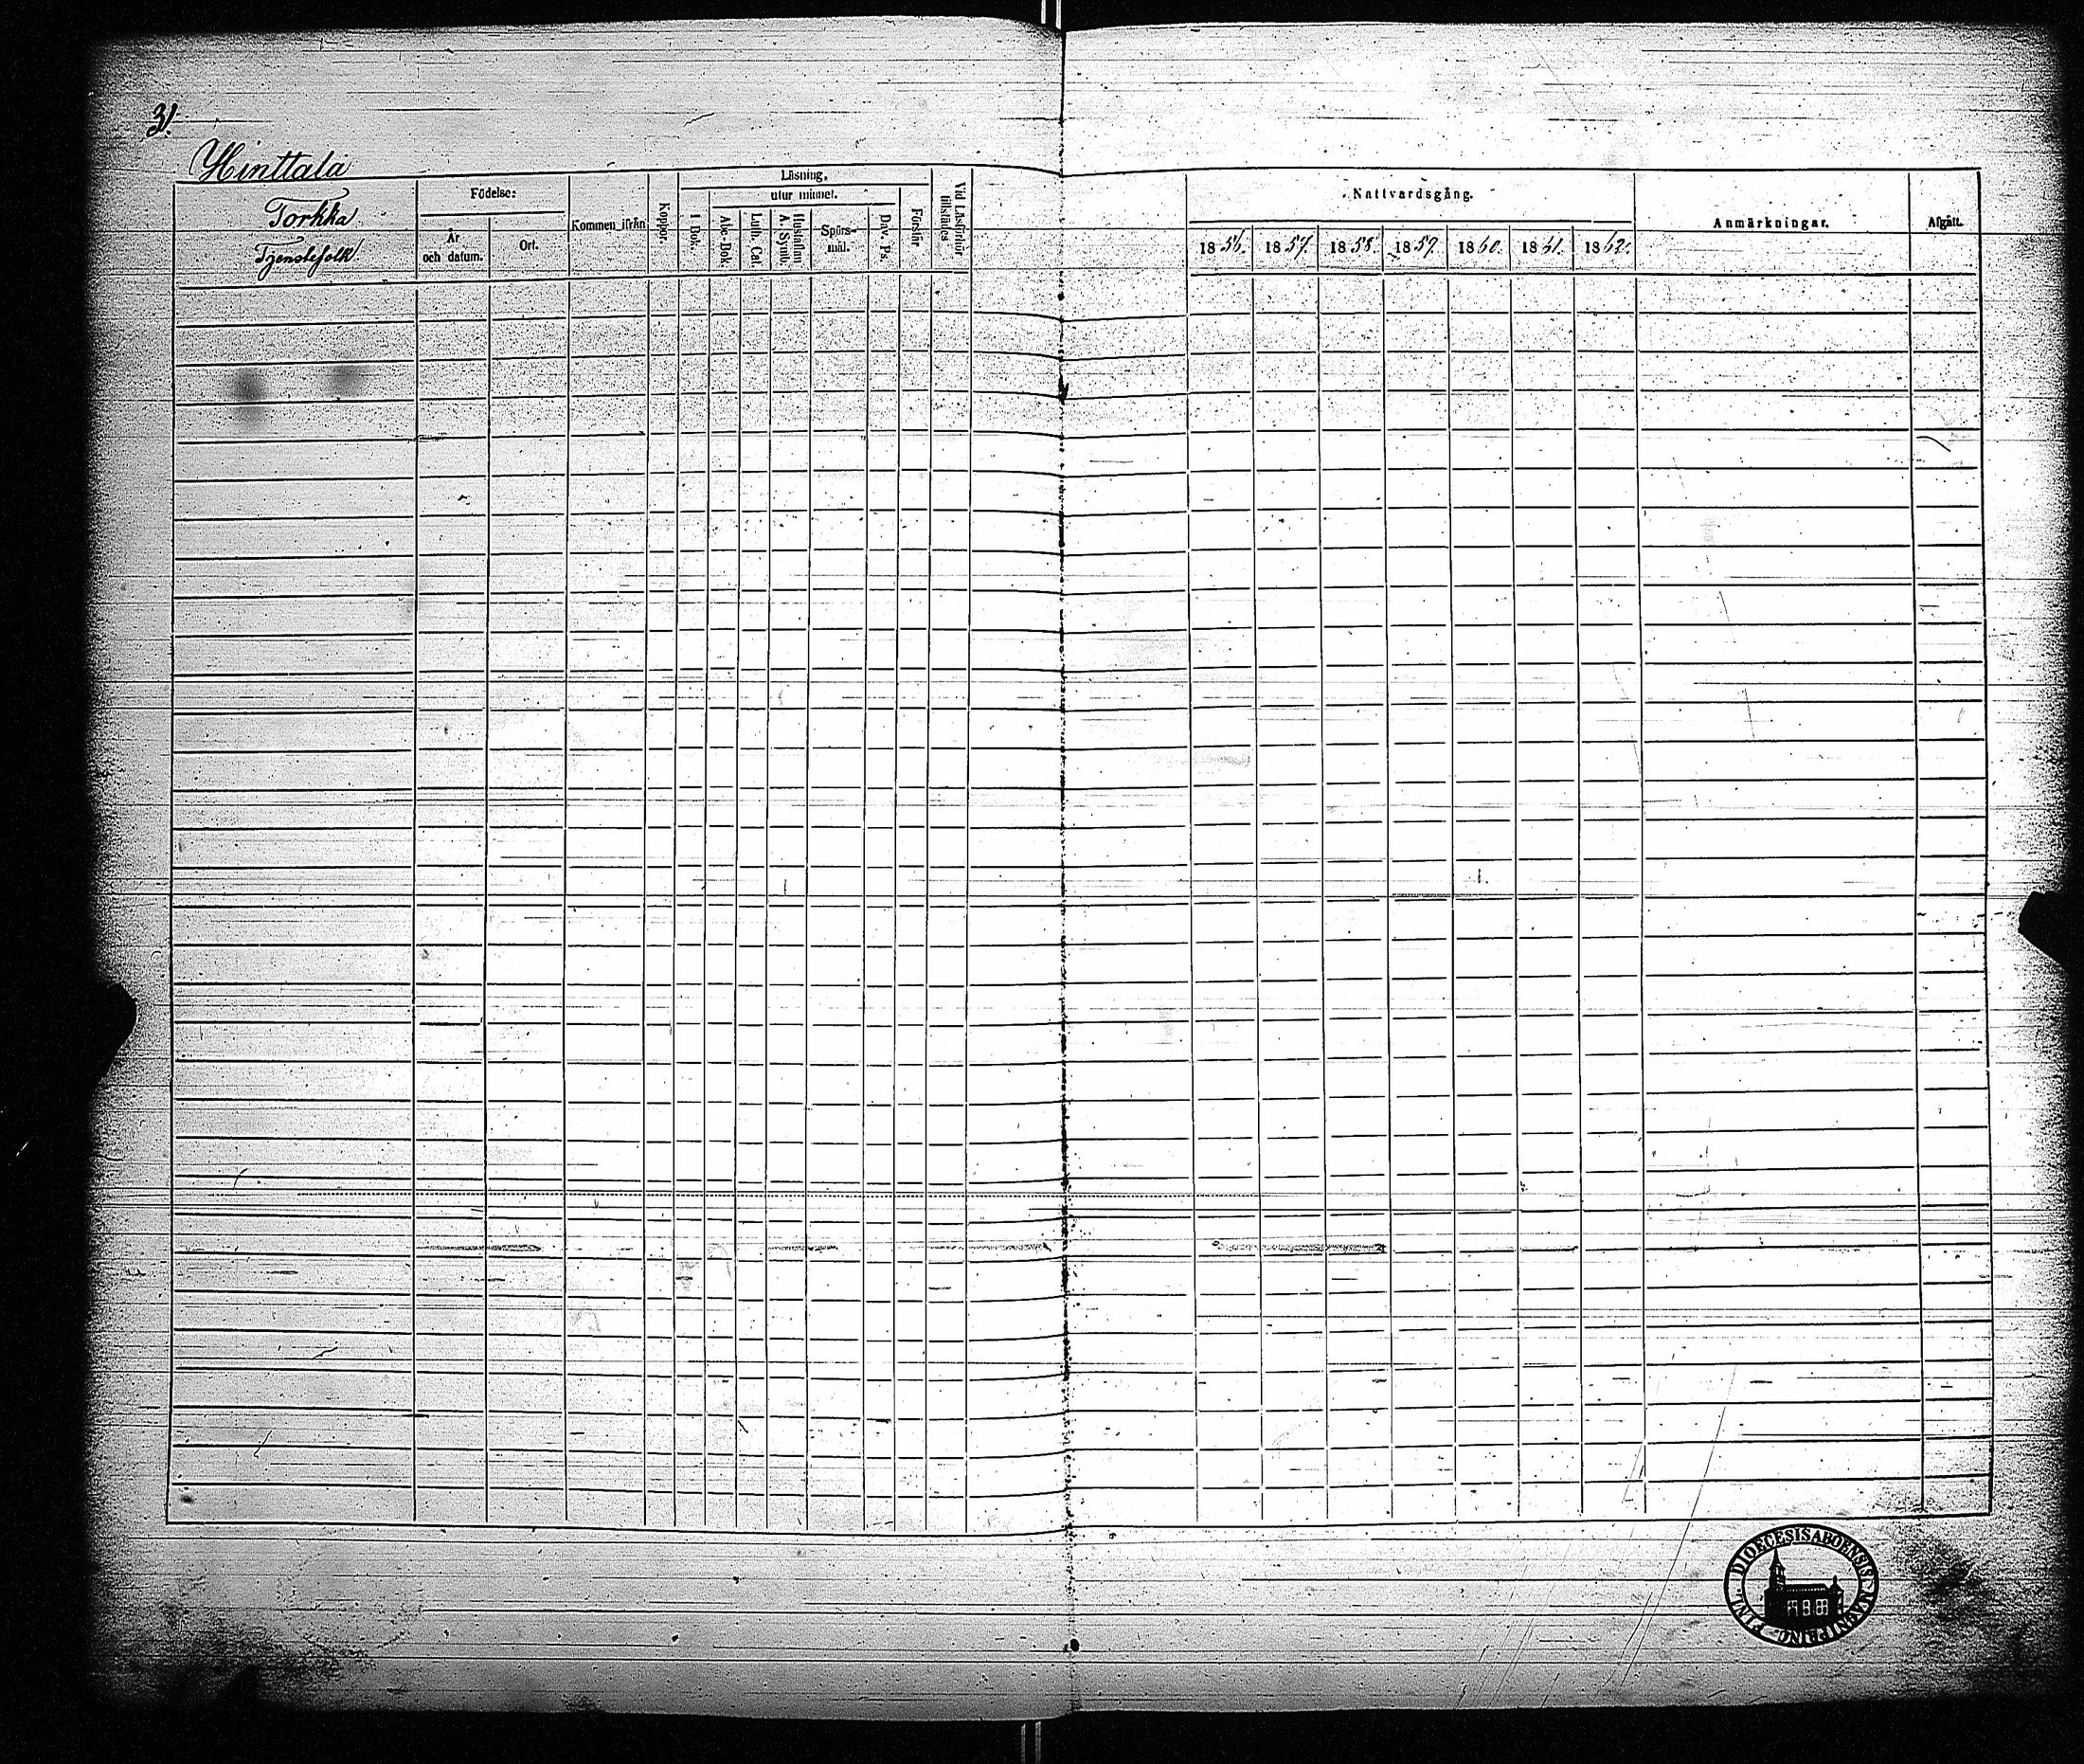 31.
Hinttala
Torkka
Tjenstefolk
Födelse:
År
och datum.
Ort.
Kommen ifrån
Koppor.
Läsning.
I Bok.
utur minnet.
Abc-Bok.
Luth. Cat.
Hustaflan
A. Symb.
Spörs-
mål.
Dav. Ps.
Förstår
Vid Läsförhör
tillstädes
Nattvardsgång.
1856. 1857. 1858. 1859. 1860. 1861. 1862.
Anmärkningar.
Afgått.
DIOECESIS ABOENSIS MAGNI PRINC. FINL.